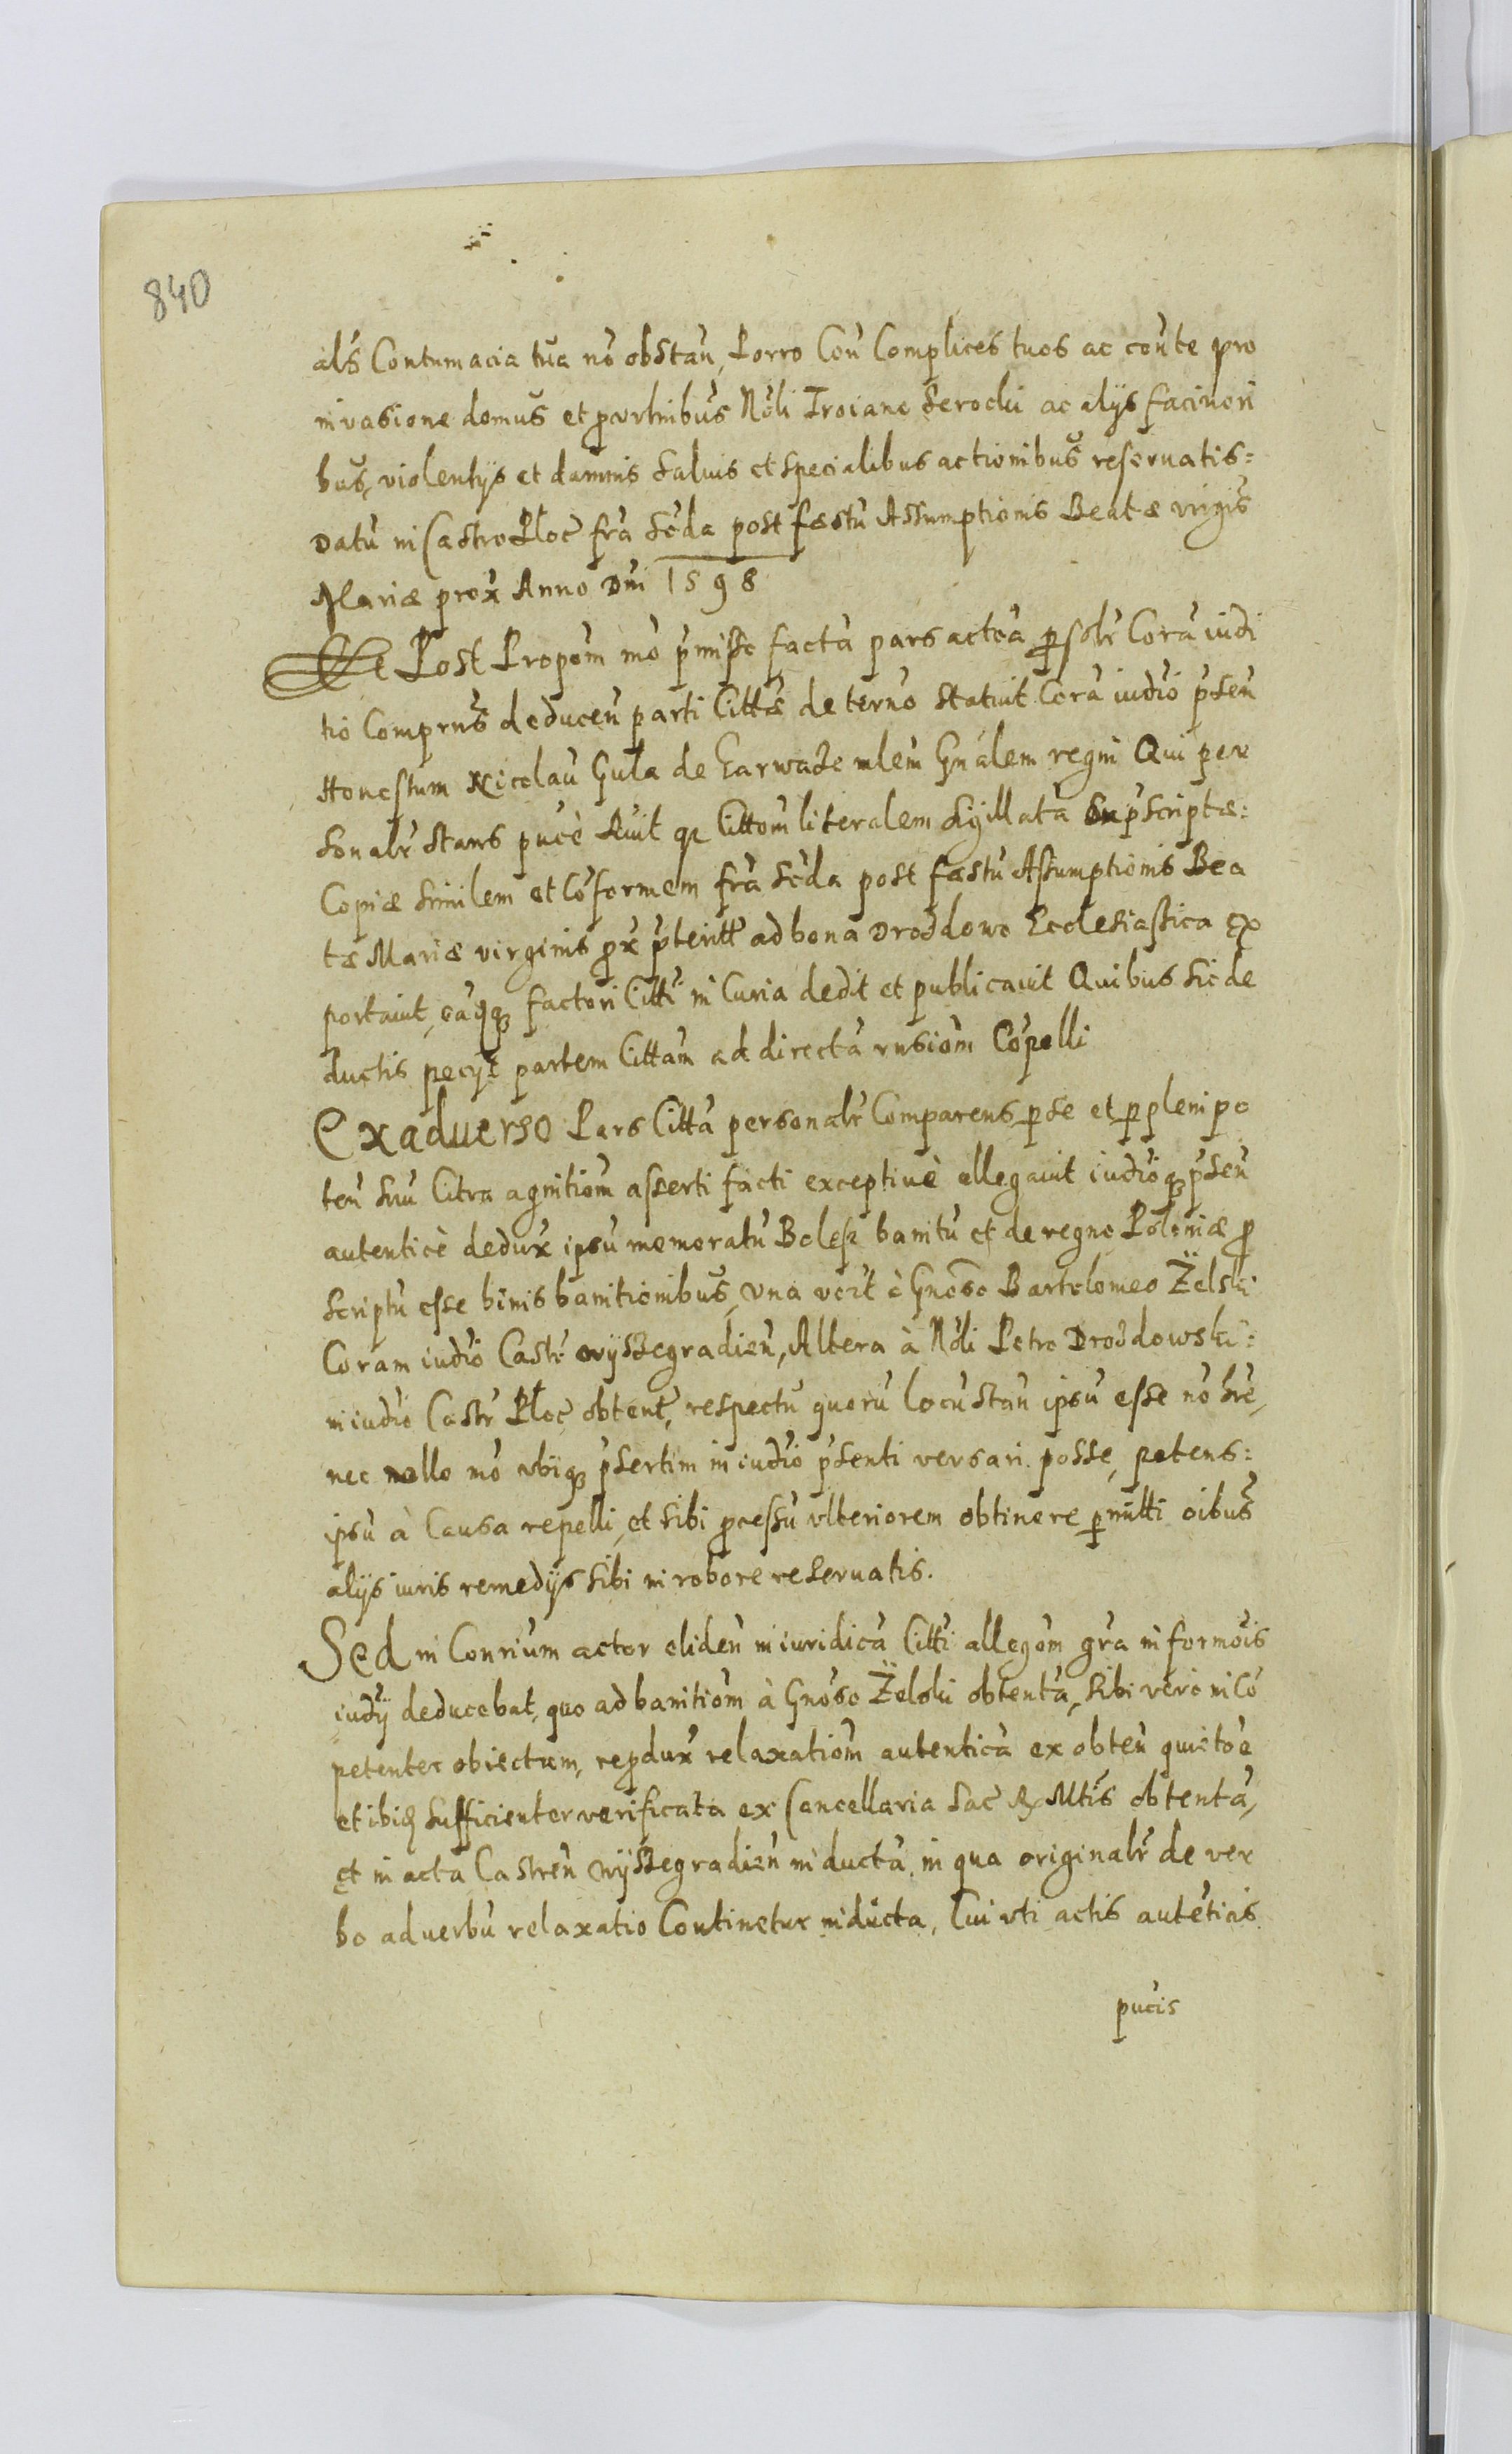 840
als Contumacia tua nō obstañ, Porro Coñ Complices tuos ac coñ te pro
invasione domus et p̱vulnibus Nōli Troiano Serocki ac alijs facinori
bus, violentijs et damnis salvis et specialibus actionibus reservatis:
Datū in Castro Ploč fr̃a sčda post fæstū Assumptionis Beatæ virgis
Mariæ prox̃ Anno Dni 1598
Post Propom̃ mō p̃misso factā pars actoā p̱solr̃ Corā iudi
tio Comprns̃ deducen̄ parti Cittæ̃ de terno statuit Corā iudīo p̃sen̄
Honestum Nicolaū Gula de Carwacze mlem̃ Gnālem regni Qui per
sonalr̃ stans pucē Rc̃uit qz Cittom̃ literalem sigillatā suprascriptæ:
Copiæ similem et Cōformem fr̃a sčda post fæstū Assumptionis Bea
tæ Mariæ virginis p̱x̃ p̃teritt̃ ad bona Drozdowo Ecclesiastica Ex
portavit, eāqq̨ factori Citti in Curia dedit et publicavit Quibus sic de
ductis pecijt partem Cittam̃ ad directā rnsiom̃ Cōpelli
Exadverso Pars Citta personalr̃ Comparens p̱ se et p̱ plenipo
ten̄ suū Citra agnitiom̃ asserti facti exceptivè allegavit iudīoq̨ p̃sen̄
autenticè dedux̃ ipsū memoratū Bolesz banitū et de regno Poloniæ p̱
scriptū esse binis banitionibus, una vez̃t à Gnōso Bartolomeo Żelski
Coram iudīo Castr̃ wijszegradien̄, Altera à Nōli Petro Drozdowski:
in iudīo Castr̃ Ploč obtent̃, respectū quorū locū stan̄ ipsū esse nō hr̃e,
nec nullo mō ubiq̨ p̃sertim in iudīo p̃senti versari posse, petens:
ipsū à Causa repelli, et sibi p̱cessū ulteriorem obtinere p̱mitti oibus
alijs iuris remedijs sibi in robore reservatis.
Sed in Conrium̃ actor eliden̄ in iuridicā Citti allegom̃ gr̃a in formōis
iudīj deducebat, quo ad banitiom̃ à Gnōso Żelski obtentā, sibi verò in Cō
petenter obiectam, rep̱dux̃ relaxatiom̃ autenticā ex obten̄ quietōe
et ibid̨ sufficienter verificata ex Cancellaria Sac̃ R. Mtis̃ obtentā,
et in acta Castren̄ wijszegradien̄ inductā, in qua originalr̃ de ver
bo ad verbū relaxatio Continetur inducta, Cui uti actis autēticis
pucis